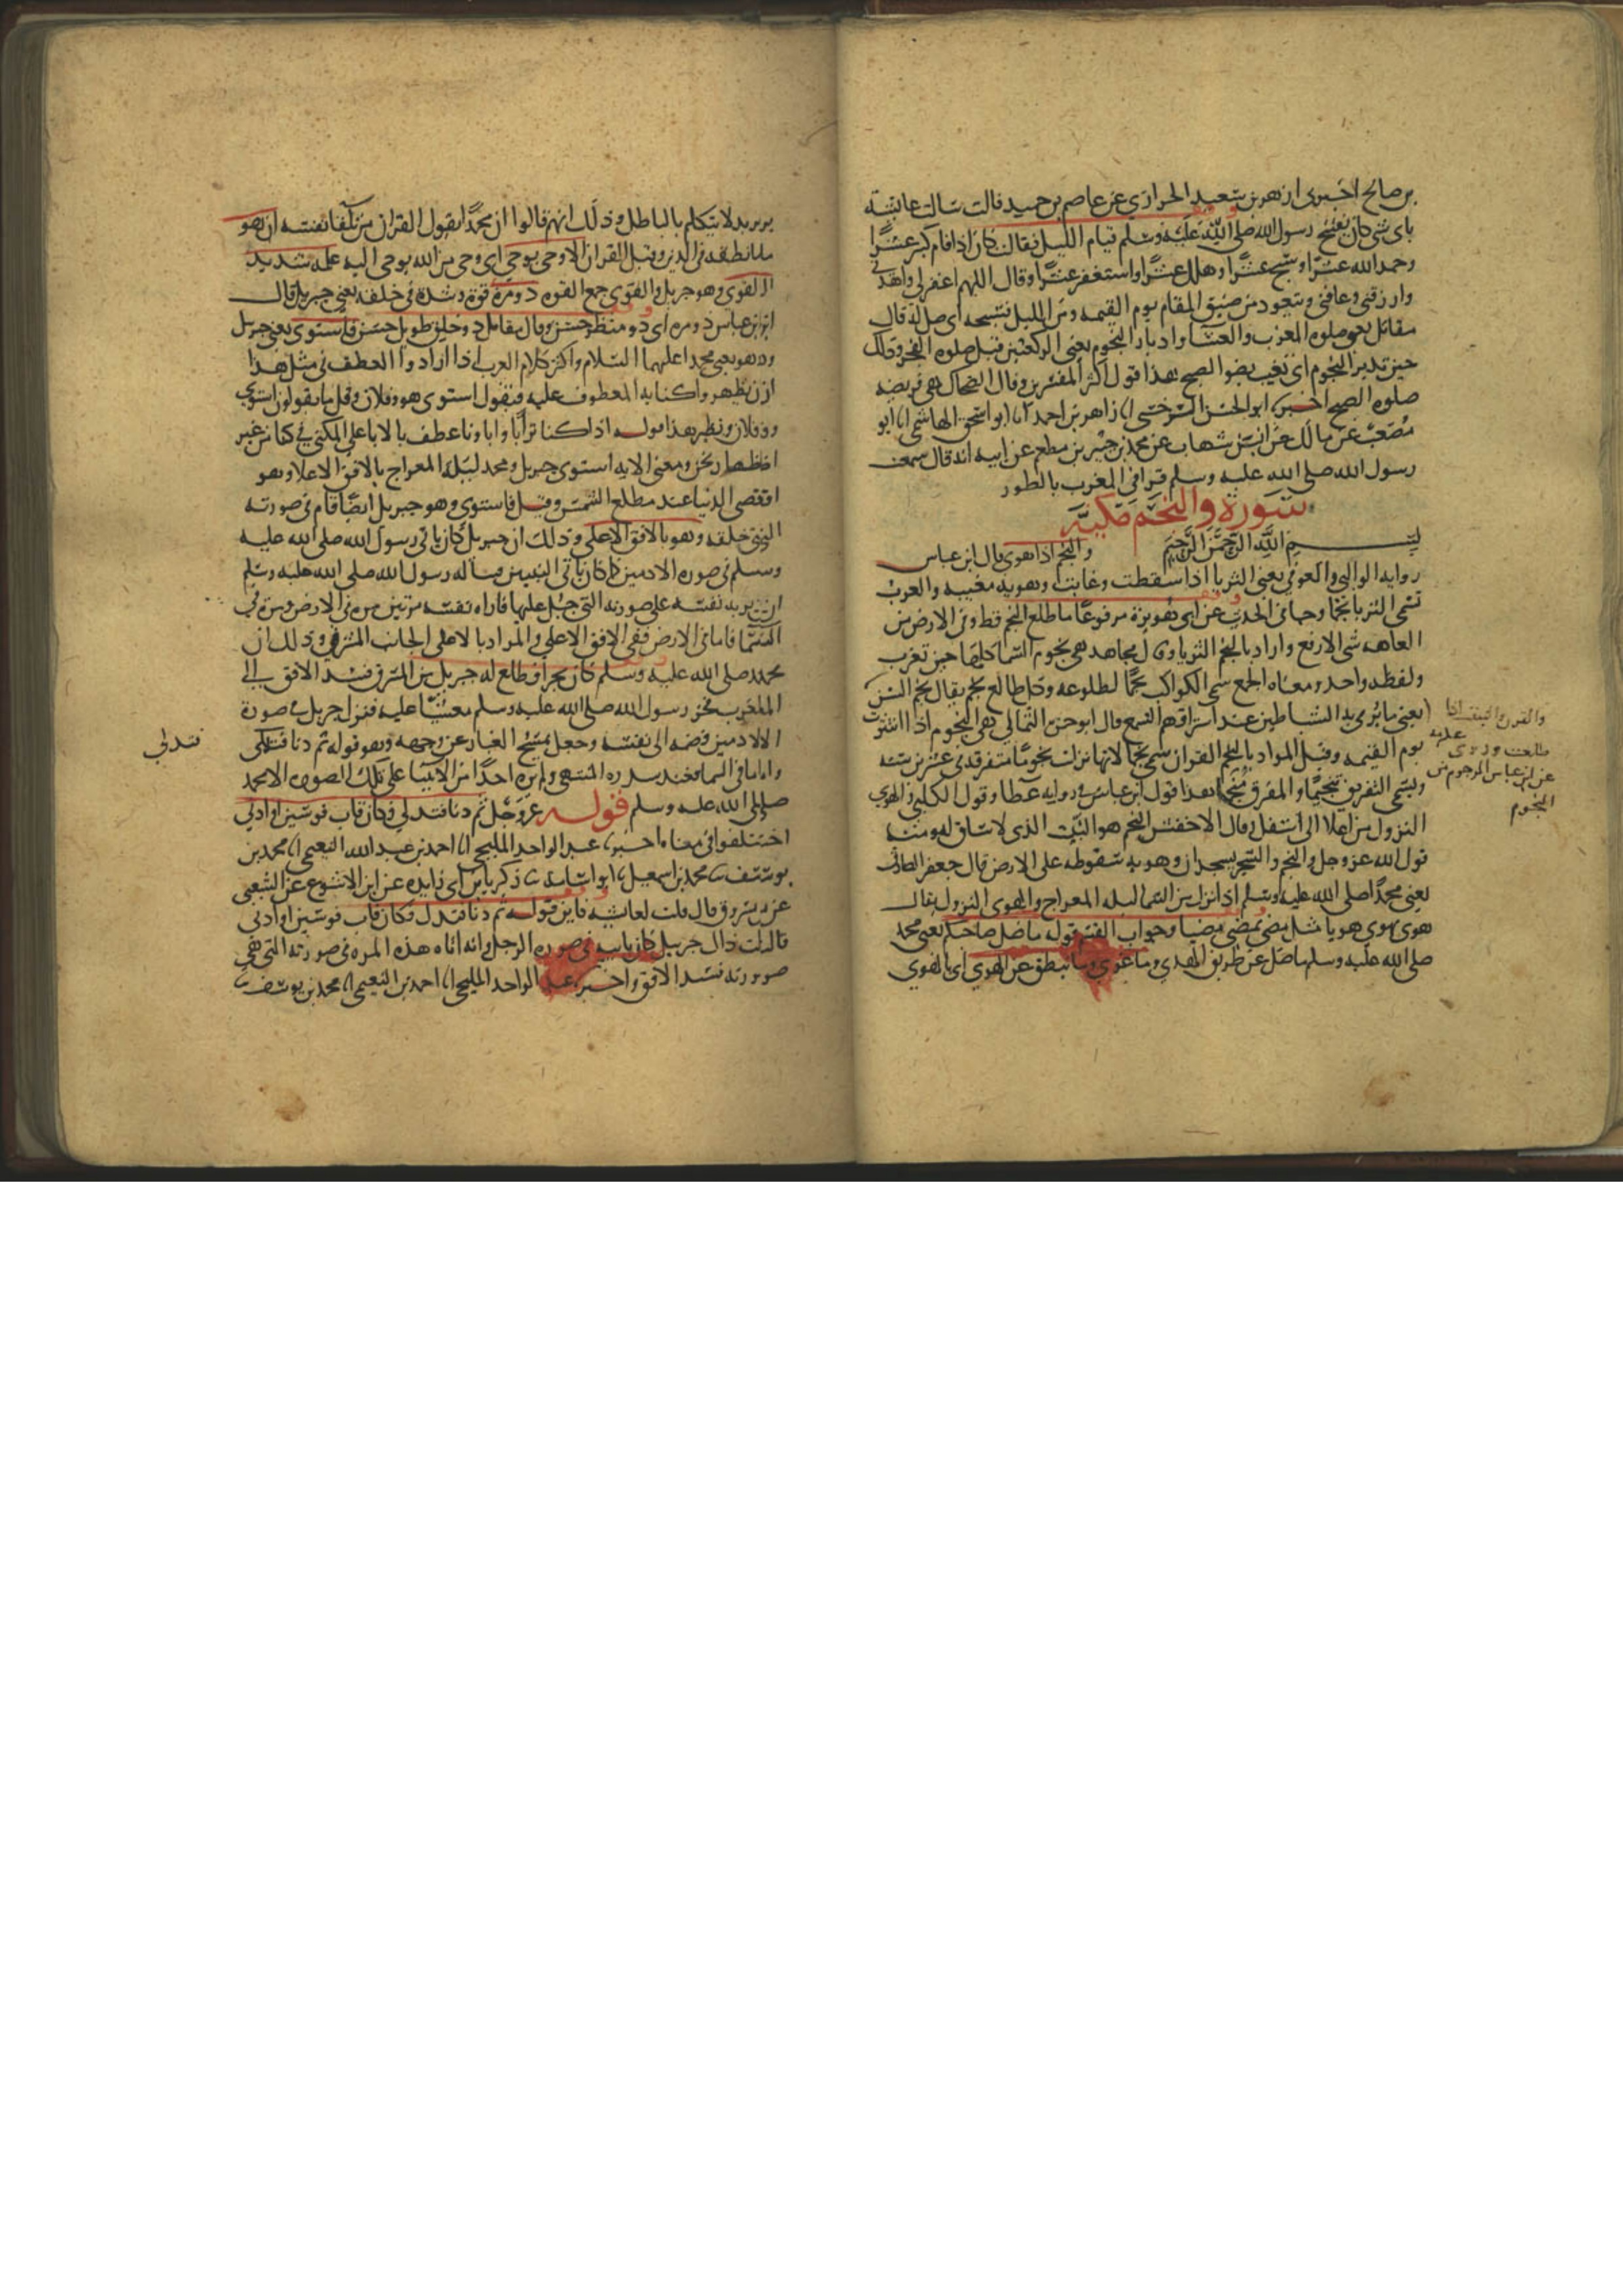 بن صالح اخبرني ازهر بن سعيد الحرازي عن عاصم بن حميد قالت سالت عايشة
باي شي كان يفتتح رسول الله صلى الله عليه وسلم قيام الليل فقالت كان اذا قام كبر عشرا
وحمد الله عشرا وسبح عشرا وهلل عشرا واستغفر عشرا وقال اللهم اغفر لي واهدني
وارزقني وعافني ويتعوذ من ضيق المقام يوم القيمه ومن الليل فسبحه اي صل له قال
مقاتل يعني صلوه المغرب والعشا وادبار النجوم يعني الركعتين قبل صلوه الفجر وذلك
حين تدبر النجوم اي تغيب بضو الصبح هذا قول اكثر المفسرين وقال الضحاك هي فريضه
صلوه الصبح اخبرنا ابو الحسن السرخسي انا زاهر بن احمد انا ابو اسحق الهاشمي انا ابو
مصعب عن مالك عن ابن شهاب عن محمد بن جبير بن مطعم عن ابيه انه قال سمعت
رسول الله صلى الله عليه وسلم قرا في المغرب بالطور
سورة والنجم مكية
بسم الله الرحمن الرحيم والنجم اذا هوى قال ابن عباس
روايه الوالبي والعوفي يعني الثريا اذا سقطت وغابت وهويه مغيبه والعرب
تسمى الثريا نجما وجا في الحديث عن ابي هريرة مرفوعا ما طلع النجم قط وفي الارض من
العاهه شي الا رفع واراد بالنجم الثريا وقال مجاهد هي نجوم السما كلها حين تغرب
ولفظه واحد ومعناه الجمع سمى الكواكب نجما لطلوعه وكل طالع نجم يقال نجم السن
يعني ما يرمى به الشياطين عند استراقهم السمع وقال ابو حمزه الثمالي هي النجوم اذا انتثرت
يوم القيمه وقيل المراد بالنجم القران سمي نجما لانها نزلت نجوما متفرقه في عشرين سنه
ويسمى التفريق تنجيما والمفرق منجما هذا قول ابن عباس في روايه عطا وقول الكلبي والهوي
النزول من اعلا الى اسفل وقال الاخفش النجم هو النبت الذي لا ساق له ومنه
قول الله عز وجل والنجم والشجر يسجدان وهويه سقوطه على الارض قال جعفر الصادق
يعني محمدا صلى الله عليه وسلم اذ انزل من السما ليله المعراج والهوى النزول يقال
هوى يهوي هويا مثل مضى يمضي مضيا وجواب القسم قوله ما ضل صاحبكم يعني محمد
صلى الله عليه وسلم ما ضل عن طريق الهدي وما غوى وما ينطق عن الهوي اي بالهوي
والقرن والنبت اذا
طلعت وروى عكرمه
عن ابن عباس المرجوم من
النجوم
يريد لا يتكلم بالباطل وذلك انهم قالوا ان محمدا يقول القران من تلقا نفسه ان هو
ما نطقه في الدين وقيل القران الا وحي يوحي اي وحي من الله يوحى اليه علمه شديد
القوى وهو جبريل والقوى جمع القوه ذو مرة قوة وشدة في خلقه يعني جبريل قال
ابن عباس ذو مره اي ذو منظر حسن وقال مقاتل ذو خلق طويل حسن فاستوى يعني جبريل
وهو يعني محمدا عليهما السلام واكثر كلام العرب اذا ارادوا العطف في مثل هذا
ان تظهر واكنايه المعطوف عليه فيقول استوى هو وفلان وقل ما يقولون استوى
وفلان ونظير هذا قوله اذا كنا ترابا واباونا عطف بالابا على المكني في كنا من غير
اظهار نحن ومعنى الايه استوى جبريل ومحمد ليلة المعراج بالافق الاعلا وهو
اقصى الدنيا عند مطلع الشمس وقيل فاستوى وهو جبريل ايضا قام في صورته
التي خلقه وهو بالافق الاعلى وذلك ان جبريل كان ياتي رسول الله صلى الله عليه
وسلم في صوره الادمين كما كان ياتي النبيين فساله رسول الله صلى الله عليه وسلم
ان يريه نفسه على صورته التي جبل عليها فاراه نفسه مرتين مره في الارض ومره في
السما فاما في الارض ففي الافق الاعلى والمراد بالاعلى الجانب المشرقي وذلك ان
محمد صلى الله عليه وسلم كان بحرا فطلع له جبريل من المشرق فسد الافق الى
المغرب فخر رسول الله صلى الله عليه وسلم مغشيا عليه فنزل جبريل في صورة
الادمين فضمه الى نفسه وجعل يمسح الغبار عن وجهه وهو قوله ثم دنا فتدلى
واما في السما فعند سدره المنتهى ولم يره احدا من الانبيا على تلك الصوره الا محمد
صلى الله عليه وسلم قوله عز وجل ثم دنا فتدلي فكان قاب قوسين او ادنى
اختلفوا في معناه اخبرنا عبد الواحد المليحي انا احمد بن عبد الله النعيمي انا محمد بن
يوسف نا محمد بن اسمعيل نا ابو اسامه نا زكريا بن ابي زايده عن ابن الاشوع عن الشعبي
عن مسروق قال قلت لعايشه فاين قوله ثم دنا فتدلى فكان قاب قوسين او ادنى
قالت ذاك جبريل كان ياتيه في صوره الرجل وانه اتاه هذه المره في صورته التي هي
صورته فسد الافق واخبرنا عبد الواحد المليحي انا احمد بن النعيمي انا محمد بن يوسف نا
فتدلى